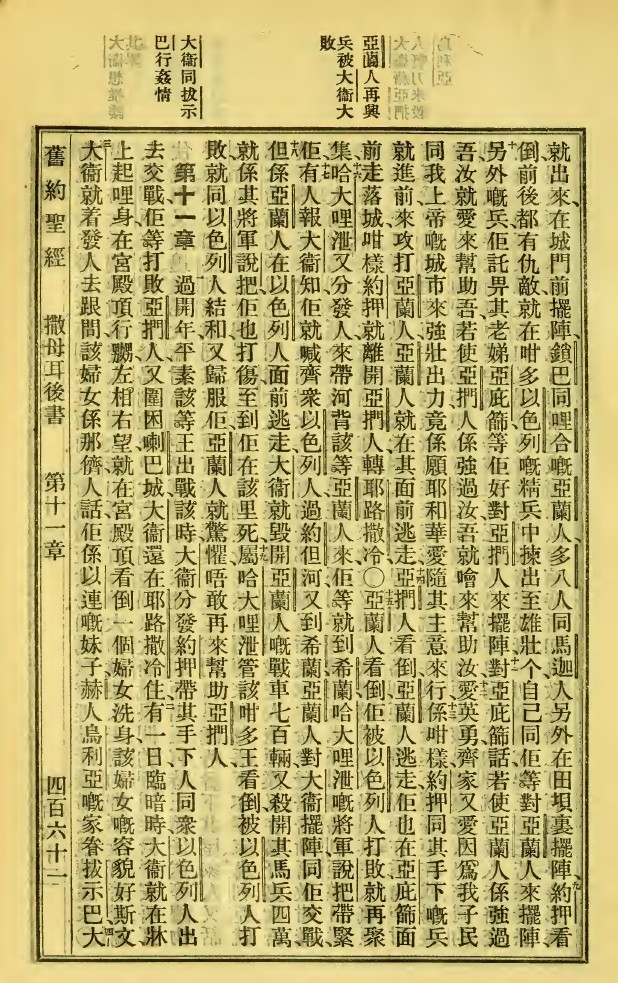 亞蘭人再興
兵被大衞大
敗
大衞同拔示
巴行姦情
就出來在城門前擺陣鎖巴同哩合嘅亞蘭人多八人同馬迦人另外在田垻裏擺陣約押看
倒前後都有仇敵就在咁多以色列嘅精兵中揀出至雄壯个自己同佢等對亞蘭人來擺陣
另外嘅兵佢託畀其老娣亞庇篩等佢好對亞捫人來擺陣對亞庇篩話若使亞蘭人係強過
吾汝就愛來幫助吾若使亞捫人係強過汝吾就噲來幫助汝愛英勇齊家又愛因爲我子民
同我上帝嘅城市來強壯出力竟係願耶和華愛隨其主意來行係咁樣約押同其手下嘅兵
就進前來攻打亞蘭人亞蘭人就在其面前逃走亞捫人看倒亞蘭人逃走佢也在亞庇篩面
前走落城咁樣約押就離開亞捫人轉耶路撒冷〇亞蘭人看倒佢被以色列人打敗就再聚
集哈大哩泄又分發人來帶河背該等亞蘭人來佢等就到希蘭哈大哩泄嘅將軍說把帶緊
佢有人報大衞知佢就喊齊衆以色列人過約但河又到希蘭亞蘭人對大衞擺陣同佢交戰
但係亞蘭人在以色列人面前逃走大衞就毀開亞蘭人嘅戰車七百輛又殺開其馬兵四萬
就係其將軍說把佢也打傷至到佢在該里死屬哈大哩泄管該咁多王看倒被以色列人打
敗就同以色列人結和又歸服佢亞蘭人就驚懼唔敢再來幫助亞捫人
第十一章 過開年平素該等王出戰該時大衞分發約押帶其手下人同衆以色列人出
去交戰佢等打敗亞捫人又圍困喇巴城大衞還在耶路撒冷住有一日臨暗時大衞就在牀
上起哩身在宮殿頂行嬲左相右望就在宮殿頂看倒一個婦女洗身該婦女嘅容貌好斯文
大衞就着發人去跟問該婦女係那儕人話佢係以連嘅妹子赫人烏利亞嘅家眷拔示巴大
舊約聖經 撒母耳後書 第十一章 四百六十一